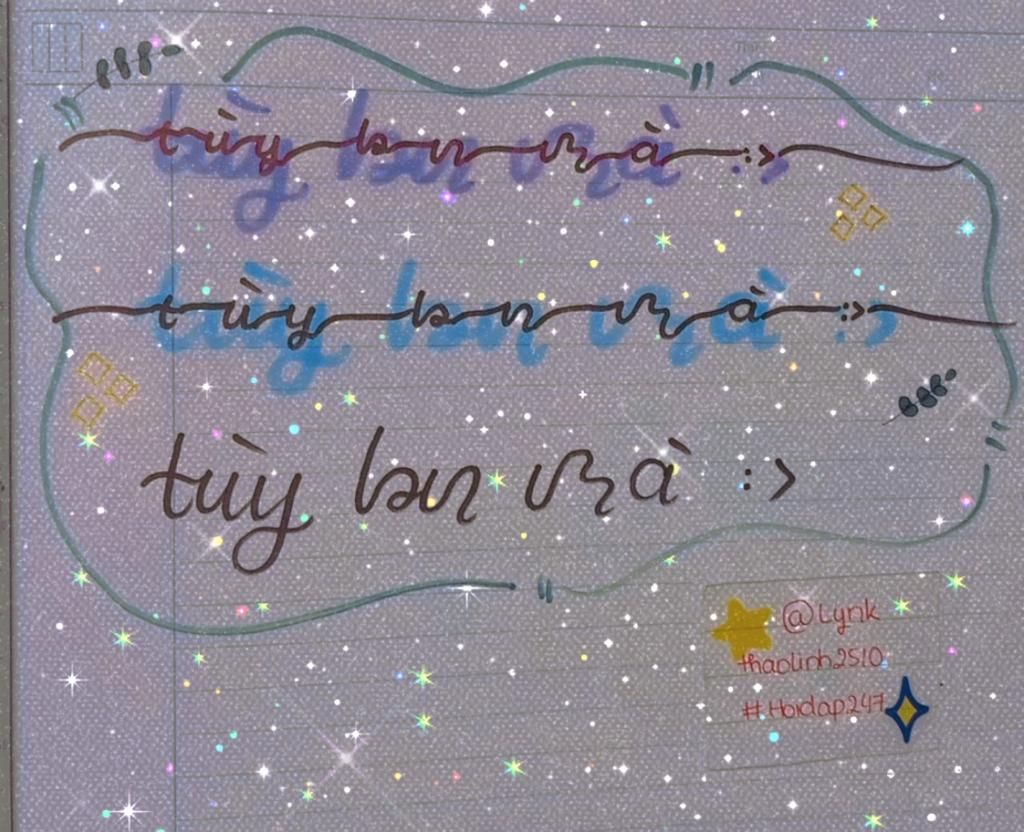 tùy bạn mà :>
tùy bạn mà :>
tùy bạn mà :>
@Lynk
thaolinh2510
#Hoidap247